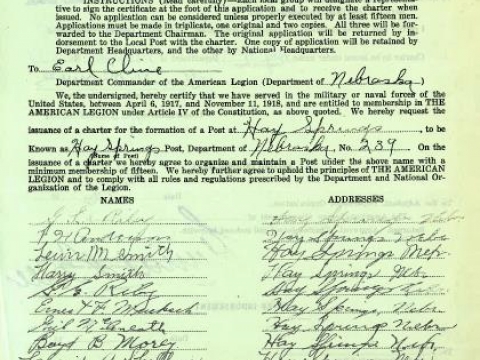 INSTRUCTIONS (Read carefully)—Each local group will designate a representa-
tive to sign the certificate at the foot of the application and to receive the charter when
issued. No application can be considered unless properly executed by at least fifteen men.
Applications must be made in triplicate, one original and two copies. All three will be for-
warded to the Department Chairman. The original application will be returned by in-
dorsement to the Local Post with the charter. One copy of application will be retained by
Department Headquarters, and the other by National Headquarters.
To Earl Cline
Department Commander of the American Legion (Department of Nebraska)
We, the undersigned, hereby certify that we have served in the military or naval forces of the
United States, between April 6, 1917, and November 11, 1918, and are entitled to membership in THE
AMERICAN LEGION under Article IV of the Constitution, as above quoted. We hereby request the
issuance of a charter for the formation of a Post at Hay Springs, to be
Known as Hay Springs Post, Department of Nebraska, No. 239 On the
(Name of Post)
issuance of a charter we hereby agree to organize and maintain a Post under the above name with a
minimum membership of fifteen. We hereby further agree to uphold the principles of THE AMERICAN
LEGION and to comply with all rules and regulations prescribed by the Department and National Or-
ganization of the Legion.
NAMES ADDRESSES
Riley Hay Springs Nebr
Anderson Hay Springs Nebr
M Smith Hay Springs Nebr
Harry Smith Hay Springs Nebr
Hay Springs
Ernest F Hay Springs Nebr
Hay Springs Nebr
Boyd B Morey Hay Springs Nebr